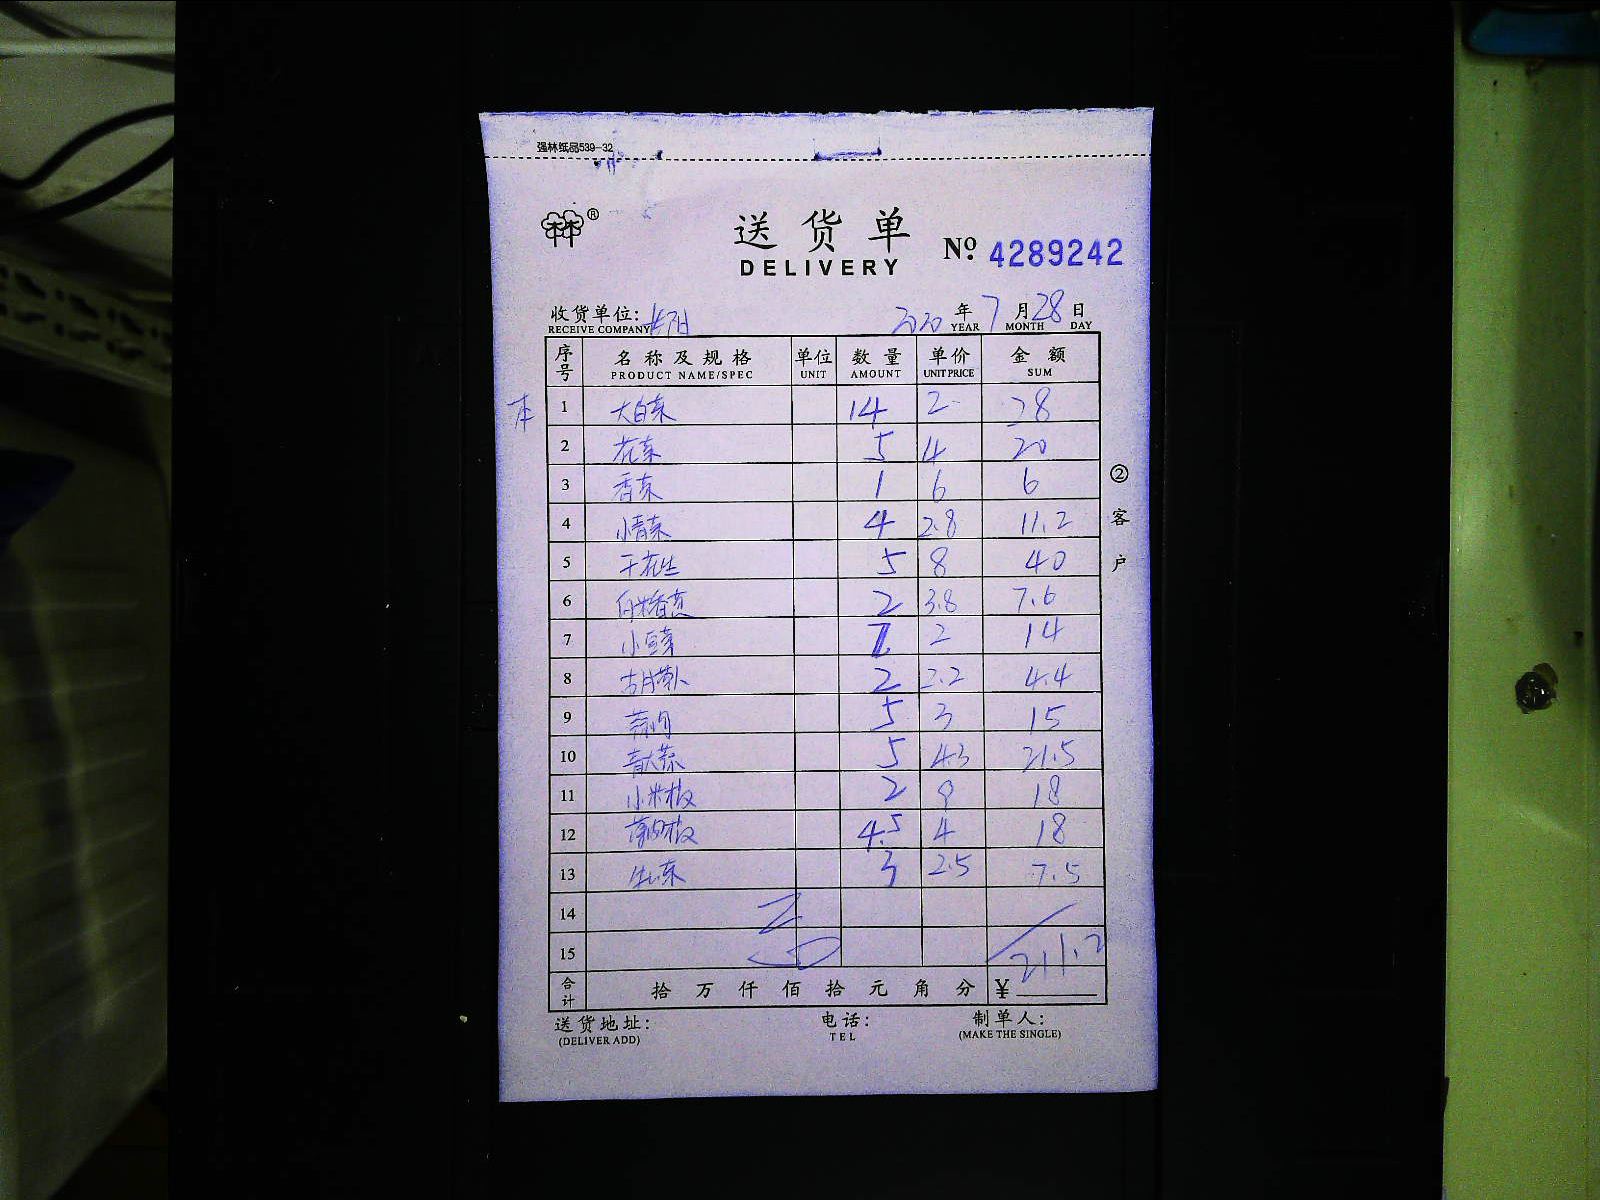 强林纸品539-32
林®
送货单
DELIVERY
№ 4289242
收货单位: 2020 年 7 月 28 日
RECEIVE COMPANY YEAR MONTH DAY
序号 名称及规格 单位 数量 单价 金额
PRODUCT NAME/SPEC UNIT AMOUNT UNIT PRICE SUM
本 1 大白菜 14 2 28
2 花菜 5 4 20
3 香菜 1 6 6
4 小青菜 4 2.8 11.2
5 干花生 5 8 40
6 2 3.8 7.6
7 小豆芽 7 2 14
8 胡萝卜 2 2.2 4.4
9 5 3 15
10 5 4.3 21.5
11 小米椒 2 9 18
12 椒 4.5 4 18
13 生菜 3 2.5 7.5
14
15 211.2
合计 拾 万 仟 佰 拾 元 角 分 ¥
送货地址: 电话: 制单人:
(DELIVER ADD) TEL (MAKE THE SINGLE)
②客户